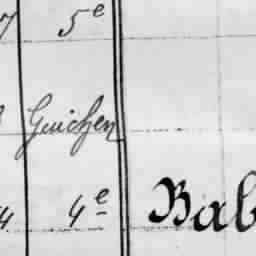 7 5e
Guichen
4 4e Bab